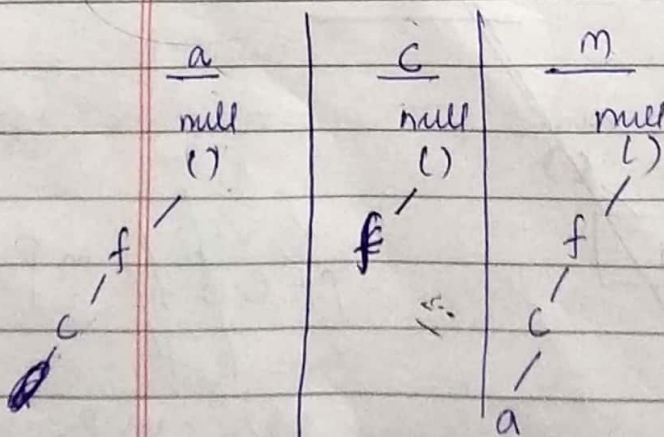 a
null
()
f
c
c
null
()
f
m
null
()
f
c
a